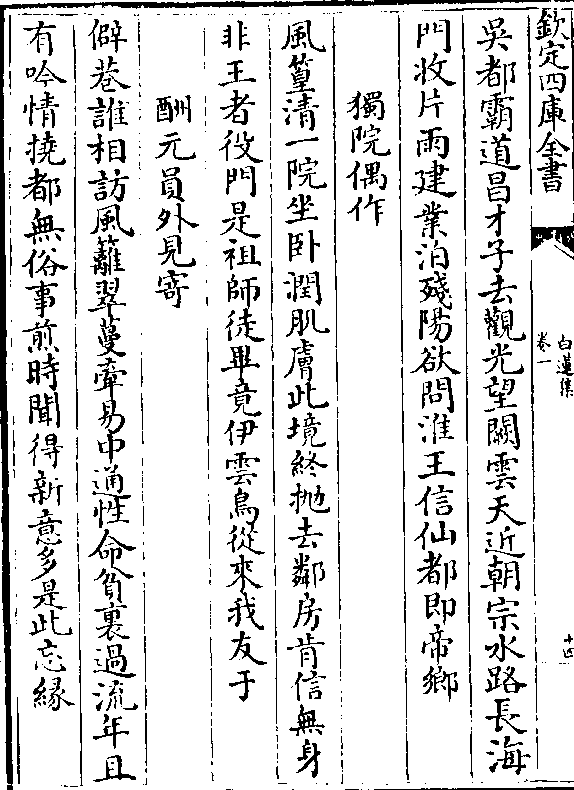 欽定四庫全書
白蓮集
卷一
十四
吳都霸道昌才子去觀光望闕雲天近朝宗水路長海
門收片雨建業泊殘陽欲問淮王信仙都即帝鄉
獨院偶作
風篁清一院坐卧潤肌膚此境終拋去鄰房肯信無身
非王者役門是祖師徒畢竟伊雲鳥從來我友于
酬元員外見寄
僻巷誰相訪風籬翠蔓牽易中通性命貧裏過流年且
有吟情撓都無俗事煎時聞得新意多是此忘緣